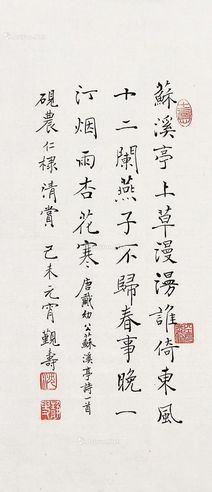 蘇溪亭上草漫漫誰倚東風
十二闌燕子不歸春事晚一
汀烟雨杏花寒
唐戴幼公蘇溪亭詩一首
硯農仁棣清賞 己未元宵觀壽